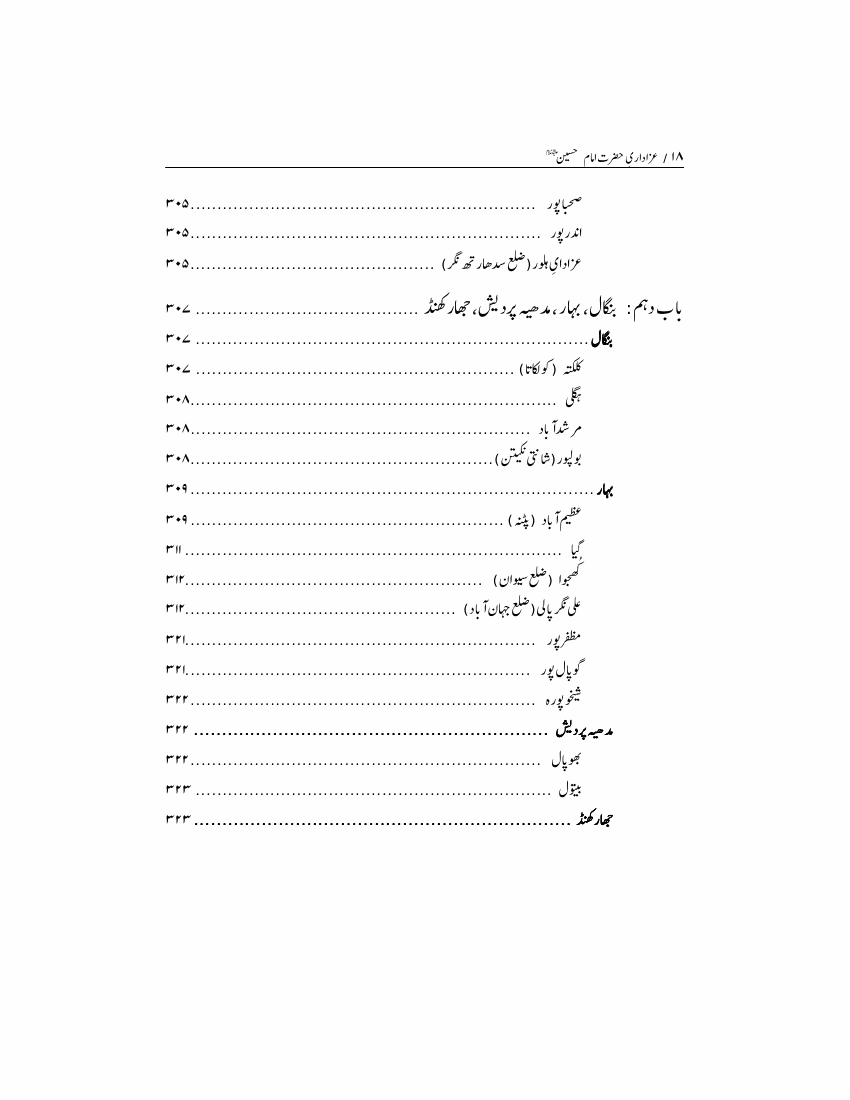 ۱۸ / عزاداری حضرت امام حسینؑ
صحباپور ........ ۳۰۵
اندرپور ........ ۳۰۵
عزادایِ ہلور (ضلع سدھارتھ نگر) ........ ۳۰۵
باب دہم: بنگال، بہار، مدھیہ پردیش، جھارکھنڈ ........ ۳۰۷
بنگال ........ ۳۰۷
کلکتہ (کولکاتا) ........ ۳۰۷
ہگلی ........ ۳۰۸
مرشدآباد ........ ۳۰۸
بولپور (شانتی نکیتن) ........ ۳۰۸
بہار ........ ۳۰۹
عظیم آباد (پٹنہ) ........ ۳۰۹
گیا ........ ۳۱۱
کھجوا (ضلع سیوان) ........ ۳۱۲
علی نگر پالی (ضلع جہان آباد) ........ ۳۱۲
مظفرپور ........ ۳۲۱
گوپال پور ........ ۳۲۱
شیخوپورہ ........ ۳۲۲
مدھیہ پردیش ........ ۳۲۲
بھوپال ........ ۳۲۲
بیتول ........ ۳۲۳
جھارکھنڈ ........ ۳۲۳